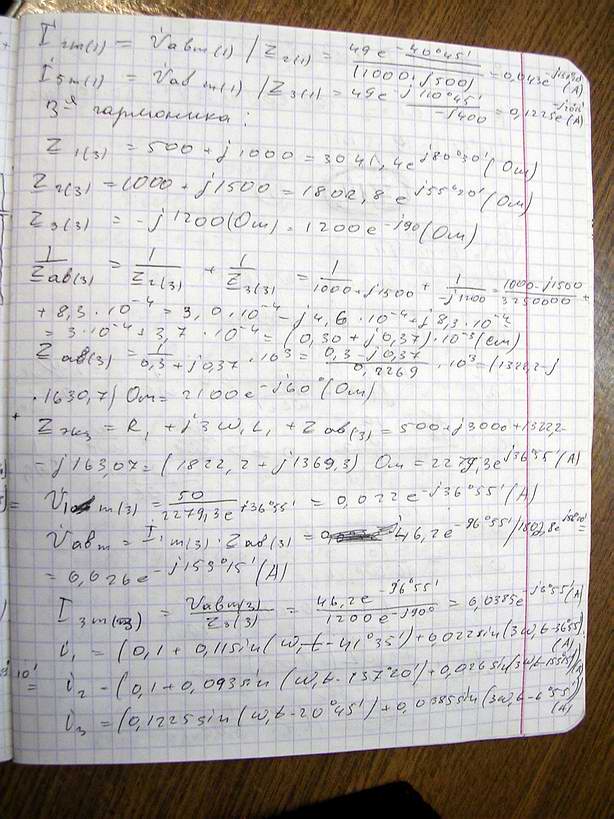 I₂m(1) = U̇abm(1) / Z₂(1) = 49e^-40°45' / (1000+j500) = 0,043e (A)
I₃m(1) = U̇abm(1) / Z₃(1) = 49e^-j110°45' / -j400 = 0,1225e (A)
3ᵃ гармоника:
Z₁(3) = 500 + j3000 = 3041,4e^j80°30' (Ом)
Z₂(3) = 1000 + j1500 = 1802,8 e^j55°20' (Ом)
Z₃(3) = -j1200 (Ом) = 1200e^-j90 (Ом)
1/Zab(3) = 1/Z₂(3) + 1/Z₃(3) = 1/(1000+j1500) + 1/(-j1200) = (1000-j1500)/3250000 +
+ 8,3 · 10⁻⁴ = 3,0 · 10⁻⁴ - j4,6 · 10⁻⁴ + j8,3 · 10⁻⁴ =
= 3 · 10⁻⁴ + 3,7 · 10⁻⁴ = (0,30 + j0,37) · 10⁻³ (см)
Zab(3) = 1/(0,3 + j0,37) · 10³ = (0,3-j0,37)/0,2269 · 10³ = (1322,2-j
· 1630,7) Ом = 2100e^-j60° (Ом)
Zэкз = R₁ + j3ω₁L₁ + Zab(3) = 500+j3000+1322,2-
- j163,07 = (1822,2 + j1369,3) Ом = 2279,3e^j36°55' (А)
m(3) = 50/2279,3e^j36°55' = 0,022e^-j36°55' (А)
U̇abm = I₁m(3) · Zab(3) = 46,2e^-96°55' / 1802,8e =
= 0,026e^-j153°15' (А)
I₃m(3) = U̇abm(3)/Z₃(3) = 46,2e^-j96°55' / 1200e^-j90° = 0,0385e^-j6°55' (А)
i₁ = (0,1 + 0,11sin(ω₁t-41°35') + 0,022sin(3ω₁t-36°55') (А)
i₂ = (0,1 + 0,093sin (ω₁t-157°20') + 0,026sin(3ω₁t (А)
i₃ = (0,1225sin(ω₁t-20°45') + 0,0385sin(3ω₁t-6°55') (А)